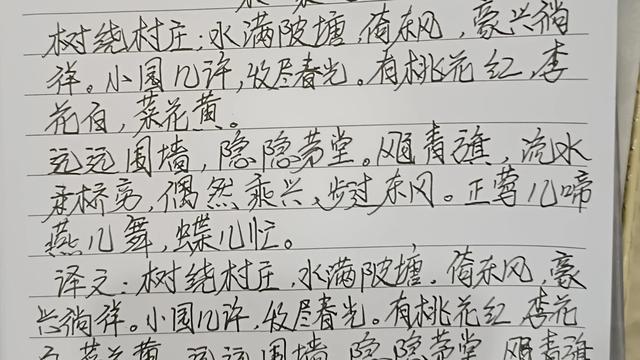 树绕村庄；水满陂塘，倚东风，豪兴徜
徉。小园几许，收尽春光。有桃花红，李
花白，菜花黄。
远远围墙，隐隐茅堂。飏青旗，流水
桥旁，偶然乘兴、步过东冈。正莺儿啼
燕儿舞，蝶儿忙。
译文：树绕村庄，水满陂塘．倚东风，豪
兴徜徉。小园几许，收尽春光。有桃花红 李花
菜花黄 远远围墙 隐隐茅堂 飏青旗